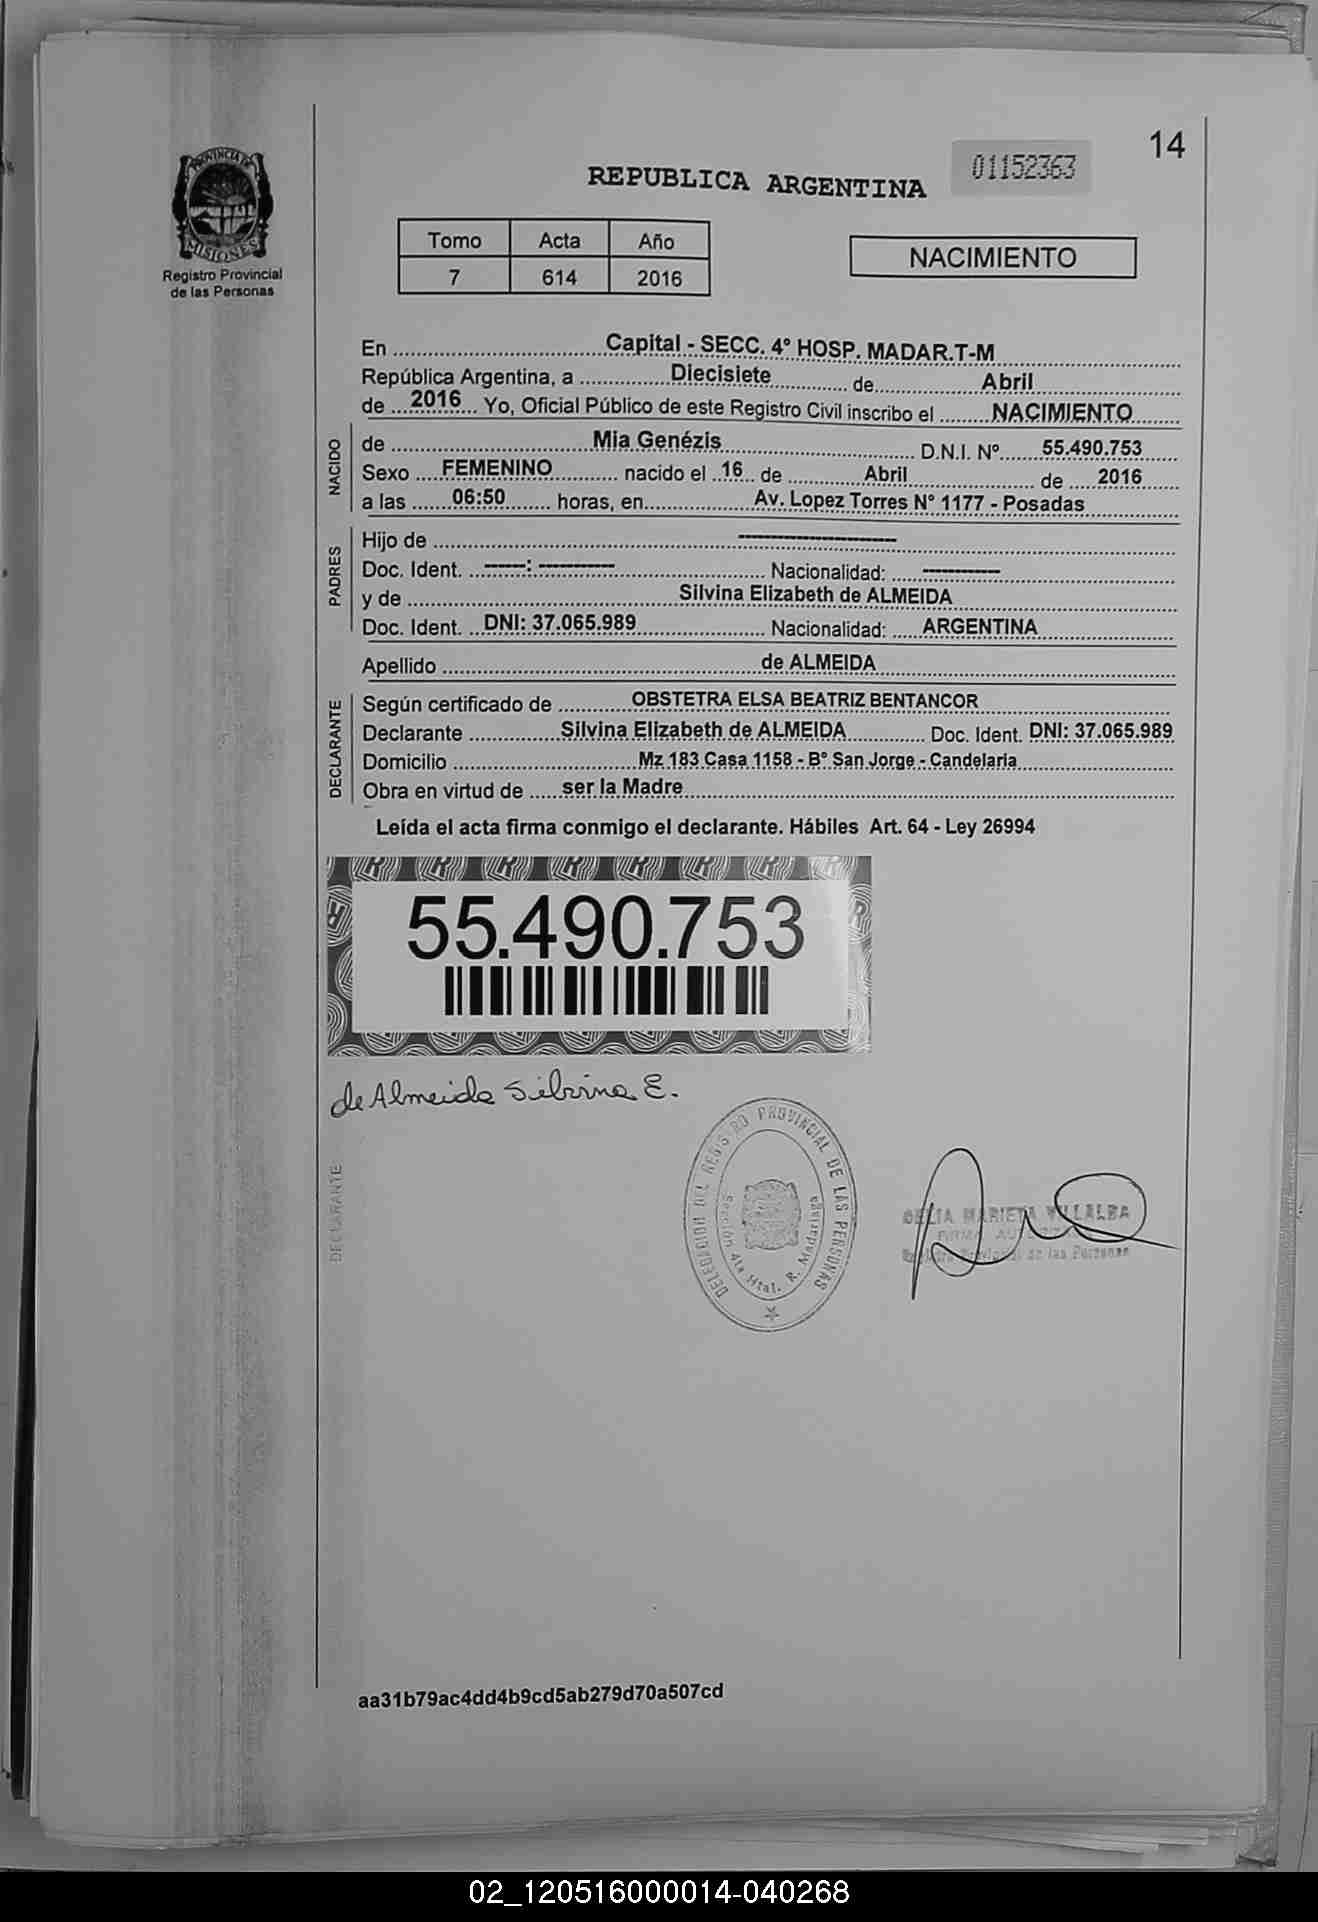 14
01152363
REPUBLICA ARGENTINA
PROVINCIA DE
MISIONES
Registro Provincial
de las Personas
Tomo Acta Año
7 614 2016
NACIMIENTO
En Capital - SECC. 4° HOSP. MADAR.T-M
República Argentina, a Diecisiete de Abril
de 2016 Yo, Oficial Público de este Registro Civil inscribo el NACIMIENTO
NACIDO
de Mia Genézis D.N.I. Nº 55.490.753
Sexo FEMENINO nacido el 16 de Abril de 2016
a las 06:50 horas, en Av. Lopez Torres N° 1177 - Posadas
PADRES
Hijo de ----------
Doc. Ident. -----: ---------- Nacionalidad: ----------
y de Silvina Elizabeth de ALMEIDA
Doc. Ident. DNI: 37.065.989 Nacionalidad: ARGENTINA
Apellido de ALMEIDA
DECLARANTE
Según certificado de OBSTETRA ELSA BEATRIZ BENTANCOR
Declarante Silvina Elizabeth de ALMEIDA Doc. Ident. DNI: 37.065.989
Domicilio Mz 183 Casa 1158 - B° San Jorge - Candelaria
Obra en virtud de ser la Madre
Leída el acta firma conmigo el declarante. Hábiles Art. 64 - Ley 26994
55.490.753
de Almeida Silvina E.
DECLARANTE
DELEGACION DEL REGISTRO PROVINCIAL DE LAS PERSONAS
Sección 4ta Htal. R. Madariaga
DELIA MARIETA VILLALBA
FIRMA AUTORIZADA
Registro Provincial de las Personas
aa31b79ac4dd4b9cd5ab279d70a507cd
02_120516000014-040268